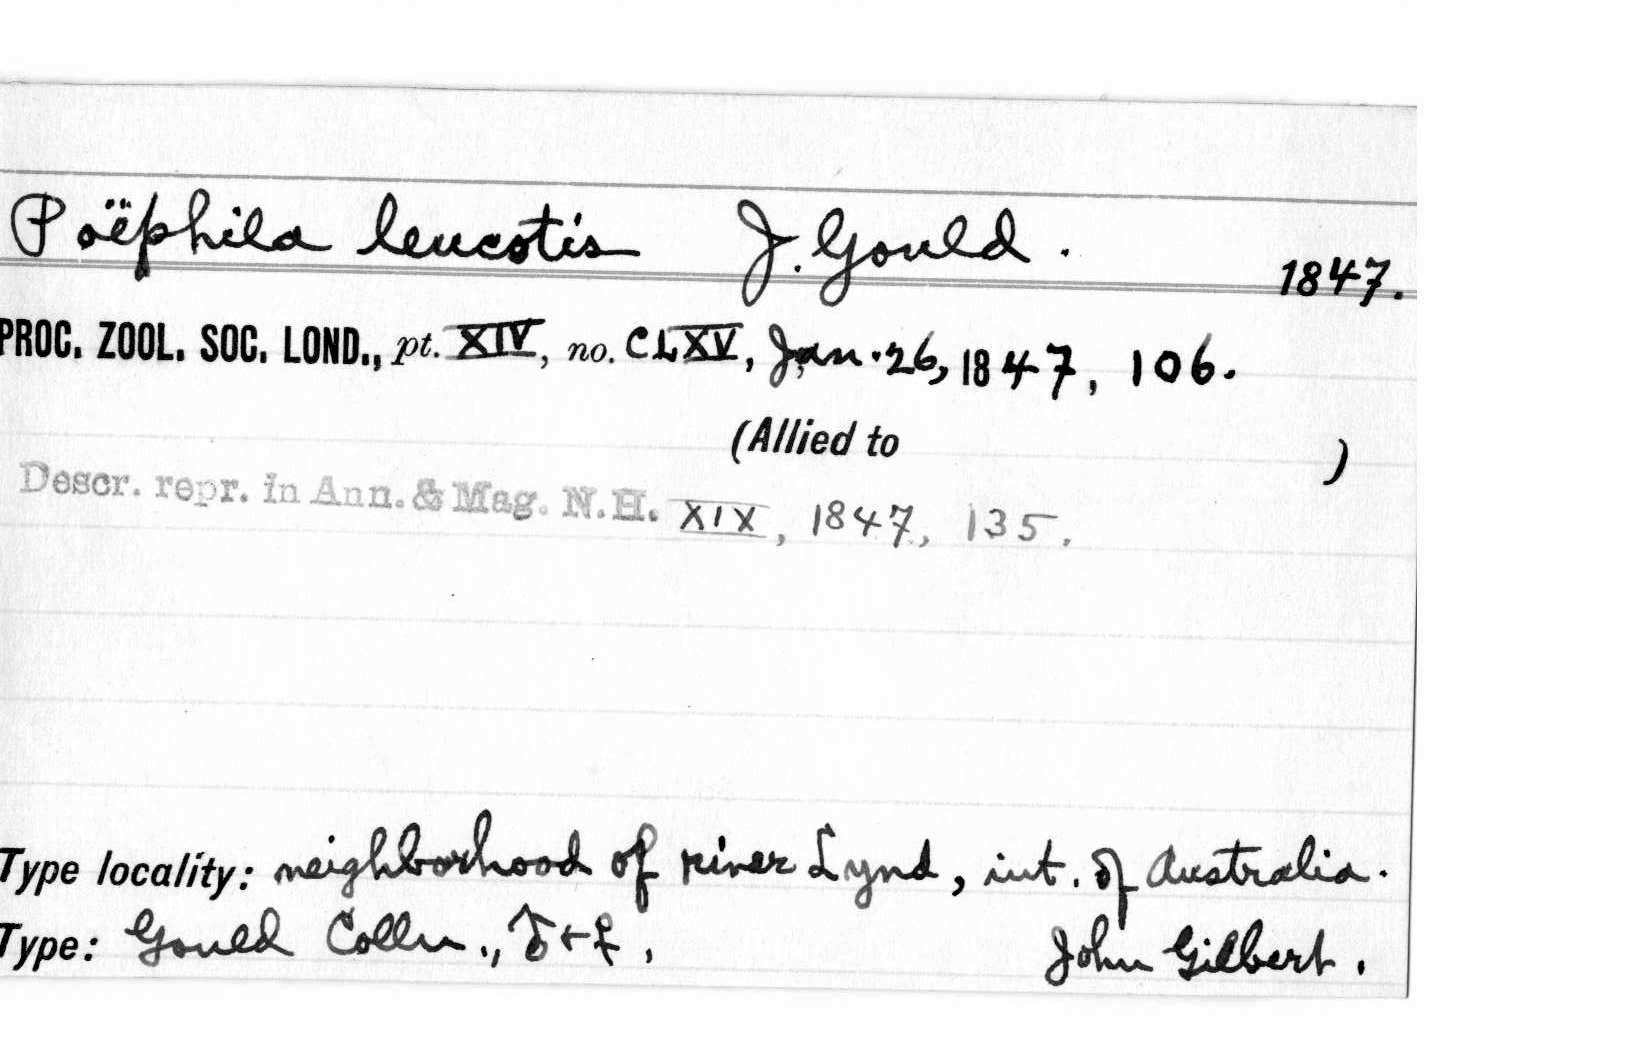 Poëphila leucotis J. Gould. 1847.
PROC. ZOOL. SOC. LOND., pt. XIV, no. CLXV, Jan. 26, 1847, 106.
(Allied to )
Descr. repr. in Ann. & Mag. N.H. XIX, 1847, 135.
Type locality: neighborhood of river Lynd, int. of Australia.
Type: Gould Colln., ♂ + ♀. John Gilbert.